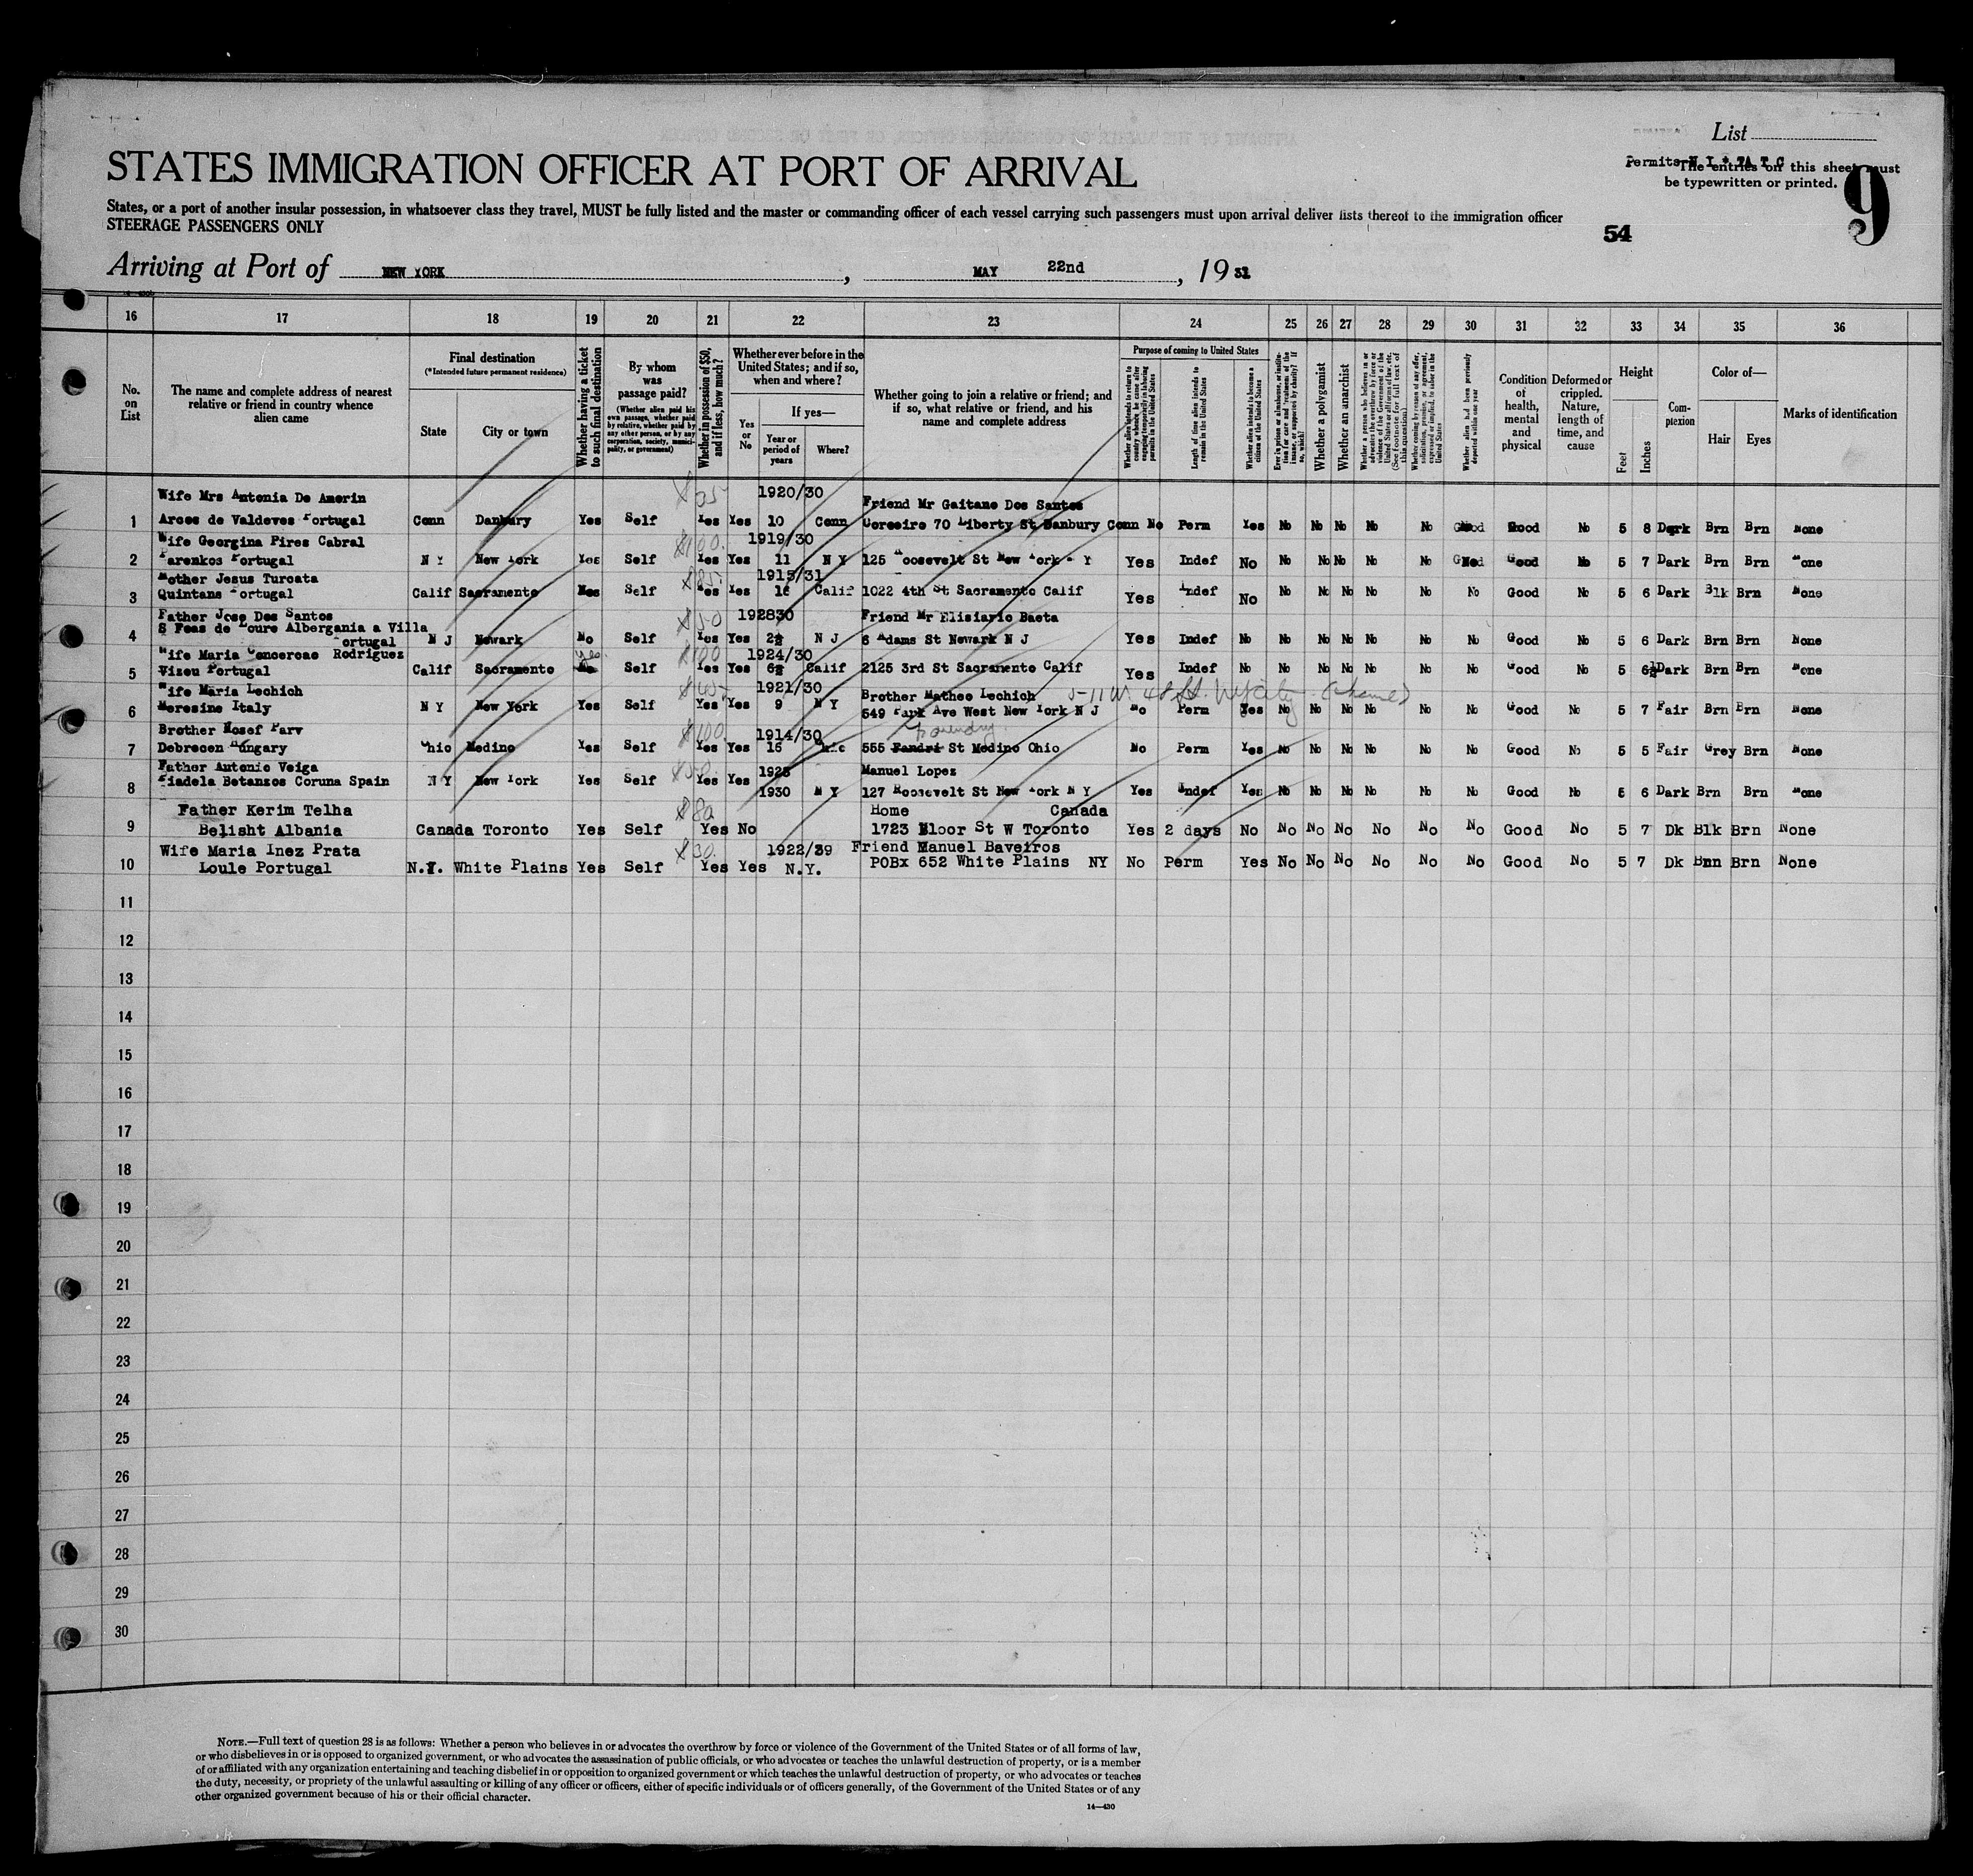 List
Permits N Y
The entries on this sheet must
be typewritten or printed.
9
STATES IMMIGRATION OFFICER AT PORT OF ARRIVAL
States, or a port of another insular possession, in whatsoever class they travel, MUST be fully listed and the master or commanding officer of each vessel carrying such passengers must upon arrival deliver lists thereof to the immigration officer
STEERAGE PASSENGERS ONLY
54
Arriving at Port of NEW YORK, MAY 22nd, 1931
16 17 18 19 20 21 22 23 24 25 26 27 28 29 30 31 32 33 34 35 36
No. on List
The name and complete address of nearest relative or friend in country whence alien came
Final destination
(*Intended future permanent residence)
State
City or town
Whether having a ticket to such final destination
By whom was passage paid?
(Whether alien paid his own passage, whether paid by relative, whether paid by any other person, or by any corporation, society, municipality, or government)
Whether in possession of $50, and if less, how much?
Whether ever before in the United States; and if so, when and where?
Yes or No
If yes—
Year or period of years
Where?
Whether going to join a relative or friend; and if so, what relative or friend, and his name and complete address
Purpose of coming to United States
Whether alien intends to return to country whence he came after engaging temporarily in laboring pursuits in the United States
Length of time alien intends to remain in the United States
Whether alien intends to become a citizen of the United States
Ever in prison or almshouse, or institution for care and treatment of the insane, or supported by charity? If so, which?
Whether a polygamist
Whether an anarchist
Whether a person who believes in or advocates the overthrow by force or violence of the Government of the United States or all forms of law, etc. (See footnote for full text of this question)
Whether coming by reason of any offer, solicitation, promise, or agreement, expressed or implied, to labor in the United States
Whether alien had been previously deported within one year
Condition of health, mental and physical
Deformed or crippled. Nature, length of time, and cause
Height
Feet
Inches
Complexion
Color of—
Hair
Eyes
Marks of identification
Wife Mrs Antonia De Amorin 1920/30 Friend Mr Gaitano Dos Santos
1 Arcos de Valdeves Portugal Conn Danbury Yes Self Yes Yes 10 Conn 70 Liberty St Danbury Conn No Perm Yes No No No No No Good No 5 8 Dark Brn Brn None
Wife Georgina Pires Cabral $100. 1919/30
2 Parenkos Portugal N Y New York Yes Self Yes Yes 11 N Y 125 Roosevelt St New York N Y Yes Indef No No No No No No Good No 5 7 Dark Brn Brn None
Mother Jesus Turcata $85. 1915/31
3 Quintans Portugal Calif Sacramento Self Yes Yes 16 Calif 1022 4th St Sacramento Calif Yes Indef No No No No No No No Good No 5 6 Dark Blk Brn None
Father Jose Dos Santos $50 192830 Friend Mr Elisiario Baeta
S Feas de Loure Albergania a Villa
4 Portugal N J Newark No Self Yes Yes N J 6 Adams St Newark N J Yes Indef No No No No No No No Good No 5 6 Dark Brn Brn None
Wife Maria Concercao Rodriguez yes $100 1924/30
5 Vizeu Portugal Calif Sacramento Self Yes Yes Calif 2125 3rd St Sacramento Calif Yes Indef No No No No No No No Good No 5 Dark Brn Brn None
Wife Maria Lechich 1921/30 Brother Matheo Lechich
6 Meresine Italy N Y New York Yes Self Yes Yes 9 N Y 549 Park Ave West New York N J No Perm Yes No No No No No No Good No 5 7 Fair Brn Brn None
Brother Hosef Parv $100 1914/30
7 Debrecen Hungary Ohio Medino Yes Self Yes Yes 16 Ohio 555 St Medino Ohio No Perm Yes No No No No No No Good No 5 5 Fair Grey Brn None
Father Antonio Veiga $50. 1925 Manuel Lopez
8 Fiadela Betanzos Coruna Spain N Y New York Yes Self Yes Yes 1930 N Y 127 Roosevelt St New York N Y Yes Indef Yes No No No No No No Good No 5 6 Dark Brn Brn None
Father Kerim Telha $80 Home Canada
9 Belisht Albania Canada Toronto Yes Self Yes No 1723 Bloor St W Toronto Yes 2 days No No No No No No No Good No 5 7 Dk Blk Brn None
Wife Maria Inez Prata $30. 1922/39 Friend Manuel Baveiros
10 Loule Portugal N.Y. White Plains Yes Self Yes Yes N.Y. POBx 652 White Plains NY No Perm Yes No No No No No No Good No 5 7 Dk Bnn Brn None
11
12
13
14
15
16
17
18
19
20
21
22
23
24
25
26
27
28
29
30
NOTE.—Full text of question 28 is as follows: Whether a person who believes in or advocates the overthrow by force or violence of the Government of the United States or of all forms of law,
or who disbelieves in or is opposed to organized government, or who advocates the assassination of public officials, or who advocates or teaches the unlawful destruction of property, or is a member
of or affiliated with any organization entertaining and teaching disbelief in or opposition to organized government or which teaches the unlawful destruction of property, or who advocates or teaches
the duty, necessity, or propriety of the unlawful assaulting or killing of any officer or officers, either of specific individuals or of officers generally, of the Government of the United States or of any
other organized government because of his or their official character.
14—430